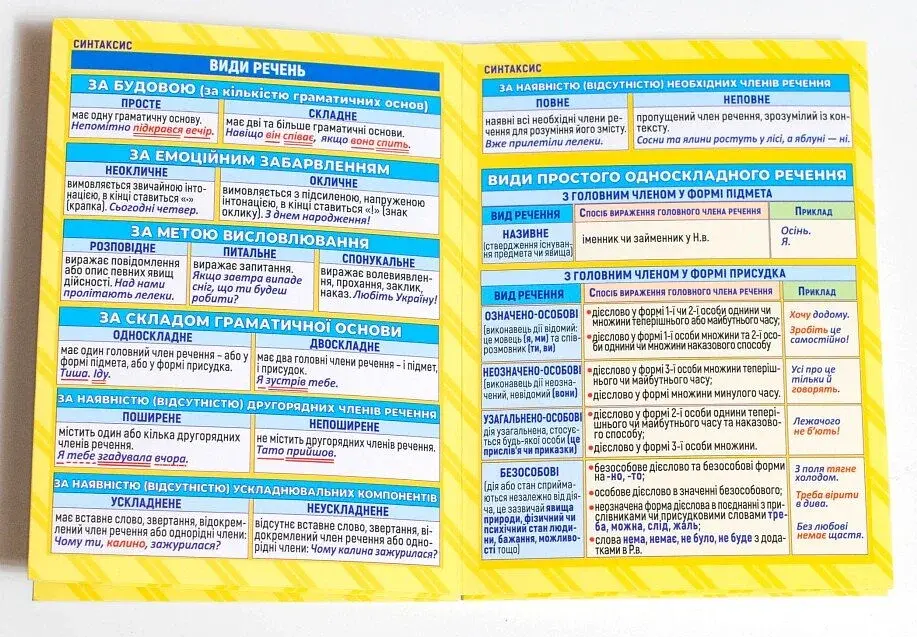 СИНТАКСИС
ВИДИ РЕЧЕНЬ
ЗА БУДОВОЮ (за кількістю граматичних основ)
ПРОСТЕ
має одну граматичну основу.
Непомітно підкрався вечір.
СКЛАДНЕ
має дві та більше граматичні основи.
Навіщо він співає, якщо вона спить.
ЗА ЕМОЦІЙНИМ ЗАБАРВЛЕННЯМ
НЕОКЛИЧНЕ
вимовляється звичайною інто-
нацією, в кінці ставиться «.»
(крапка). Сьогодні четвер.
ОКЛИЧНЕ
вимовляється з підсиленою, напруженою
інтонацією, в кінці ставиться «!» (знак
оклику). З днем народження!
ЗА МЕТОЮ ВИСЛОВЛЮВАННЯ
РОЗПОВІДНЕ
виражає повідомлення
або опис певних явищ
дійсності. Над нами
пролітають лелеки.
ПИТАЛЬНЕ
виражає запитання.
Якщо завтра випаде
сніг, що ти будеш
робити?
СПОНУКАЛЬНЕ
виражає волевиявлен-
ня, прохання, заклик,
наказ. Любіть Україну!
ЗА СКЛАДОМ ГРАМАТИЧНОЇ ОСНОВИ
ОДНОСКЛАДНЕ
має один головний член речення – або у
формі підмета, або у формі присудка.
Тиша. Іду.
ДВОСКЛАДНЕ
має два головні члени речення – і підмет,
і присудок.
Я зустрів тебе.
ЗА НАЯВНІСТЮ (ВІДСУТНІСТЮ) ДРУГОРЯДНИХ ЧЛЕНІВ РЕЧЕННЯ
ПОШИРЕНЕ
містить один або кілька другорядних
членів речення.
Я тебе згадувала вчора.
НЕПОШИРЕНЕ
не містить другорядних членів речення.
Тато прийшов.
ЗА НАЯВНІСТЮ (ВІДСУТНІСТЮ) УСКЛАДНЮВАЛЬНИХ КОМПОНЕНТІВ
УСКЛАДНЕНЕ
має вставне слово, звертання, відокрем-
лений член речення або однорідні члени:
Чому ти, калино, зажурилася?
НЕУСКЛАДНЕНЕ
відсутнє вставне слово, звертання, ві-
докремлений член речення або одно-
рідні члени: Чому калина зажурилася?
СИНТАКСИС
ЗА НАЯВНІСТЮ (ВІДСУТНІСТЮ) НЕОБХІДНИХ ЧЛЕНІВ РЕЧЕННЯ
ПОВНЕ
наявні всі необхідні члени ре-
чення для розуміння його змісту.
Вже прилетіли лелеки.
НЕПОВНЕ
пропущений член речення, зрозумілий із кон-
тексту.
Сосни та ялини ростуть у лісі, а яблуні — ні.
ВИДИ ПРОСТОГО ОДНОСКЛАДНОГО РЕЧЕННЯ
З ГОЛОВНИМ ЧЛЕНОМ У ФОРМІ ПІДМЕТА
ВИД РЕЧЕННЯ
СПОСІБ ВИРАЖЕННЯ ГОЛОВНОГО ЧЛЕНА РЕЧЕННЯ
ПРИКЛАД
НАЗИВНЕ
(ствердження існуван-
ня предмета чи явища)
іменник чи займенник у Н.в.
Осінь.
Я.
З ГОЛОВНИМ ЧЛЕНОМ У ФОРМІ ПРИСУДКА
ВИД РЕЧЕННЯ
СПОСІБ ВИРАЖЕННЯ ГОЛОВНОГО ЧЛЕНА РЕЧЕННЯ
ПРИКЛАД
ОЗНАЧЕНО-ОСОБОВІ
(виконавець дії відомий:
це мовець (я, ми) та спів-
розмовник (ти, ви)
•дієслово у формі 1-ї чи 2-ї особи однини чи
множини теперішнього або майбутнього часу;
•дієслово у формі 1-ї особи множини та 2-ї осо-
би однини чи множини наказового способу
Хочу додому.
Зробіть це
самостійно!
НЕОЗНАЧЕНО-ОСОБОВІ
(виконавець дії неозна-
чений, невідомий (вони)
•дієслово у формі 3-ї особи множини теперіш-
нього чи майбутнього часу;
•дієслово у формі множини минулого часу.
Усі про це
тільки й
говорять.
УЗАГАЛЬНЕНО-ОСОБОВІ
дія узагальнена, стосуєть-
ся будь-якої особи (це
прислів'я чи приказки)
•дієслово у формі 2-ї особи однини тепері-
шнього чи майбутнього часу та наказово-
го способу;
•дієслово у формі 3-ї особи множини.
Лежачого
не б'ють!
БЕЗОСОБОВІ
(дія або стан сприйма-
ються незалежно від дія-
ча, це зазвичай явища
природи, фізичний чи
психічний стан люди-
ни, бажання, можливо-
сті тощо)
•безособове дієслово та безособові форми
на -но, -то;
•особове дієслово в значенні безособового;
•неозначена форма дієслова в поєднанні з при-
слівниками чи присудковими словами тре-
ба, можна, слід, жаль;
•слова нема, немає, не було, не буде з дода-
тками в Р.в.
З поля тягне
холодом.
Треба вірити
в дива.
Без любові
немає щастя.